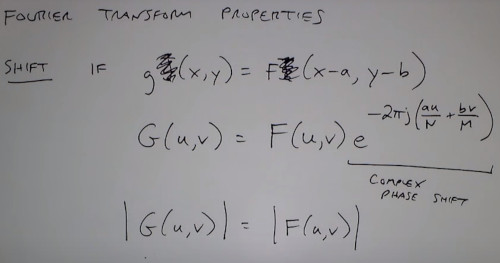 FOURIER TRANSFORM PROPERTIES
SHIFT IF g(x,y) = F(x-a, y-b)
G(u,v) = F(u,v) e^{-2πj(au/N + bv/M)}
COMPLEX
PHASE SHIFT
|G(u,v)| = |F(u,v)|